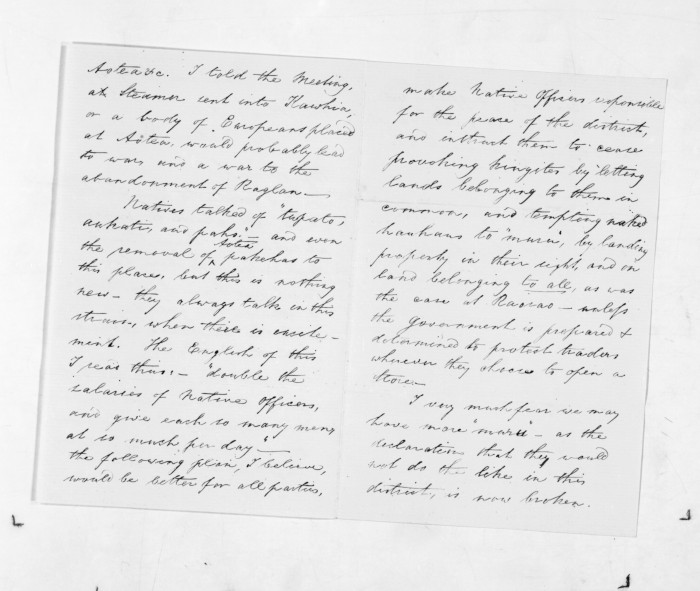 Aotea &c. I told the Meeting,
a Steamer sent into Kawhia,
or a body of Europeans placed
at Aotea, would probably lead
to war, and a war to the
abandonment of Raglan—
Natives talked of "tupato,
aukati, and pahs"— and even
the removal of Aotea pakehas to
this place, but this is nothing
new— they always talk in this
strain, when there is excite-
ment. The English of this
I read thus:— "double the
salaries of Native Officers,
and give each so many men,
at so much per day"—
the following plan, I believe,
would be better for all parties,
make Native Officers responsible
for the peace of the district,
and instruct them to cease
provoking kingites by letting
lands belonging to them in
common, and tempting naked
hauhaus to "muru", by landing
property in their sight, and on
land belonging to all, as was
the case at — unless
the government is prepared &
determined to protect traders
wherever they choose to open a
store—
I very much fear we may
have more "muru"— as the
declaration that they would
not do the like in this
district, is now broken.